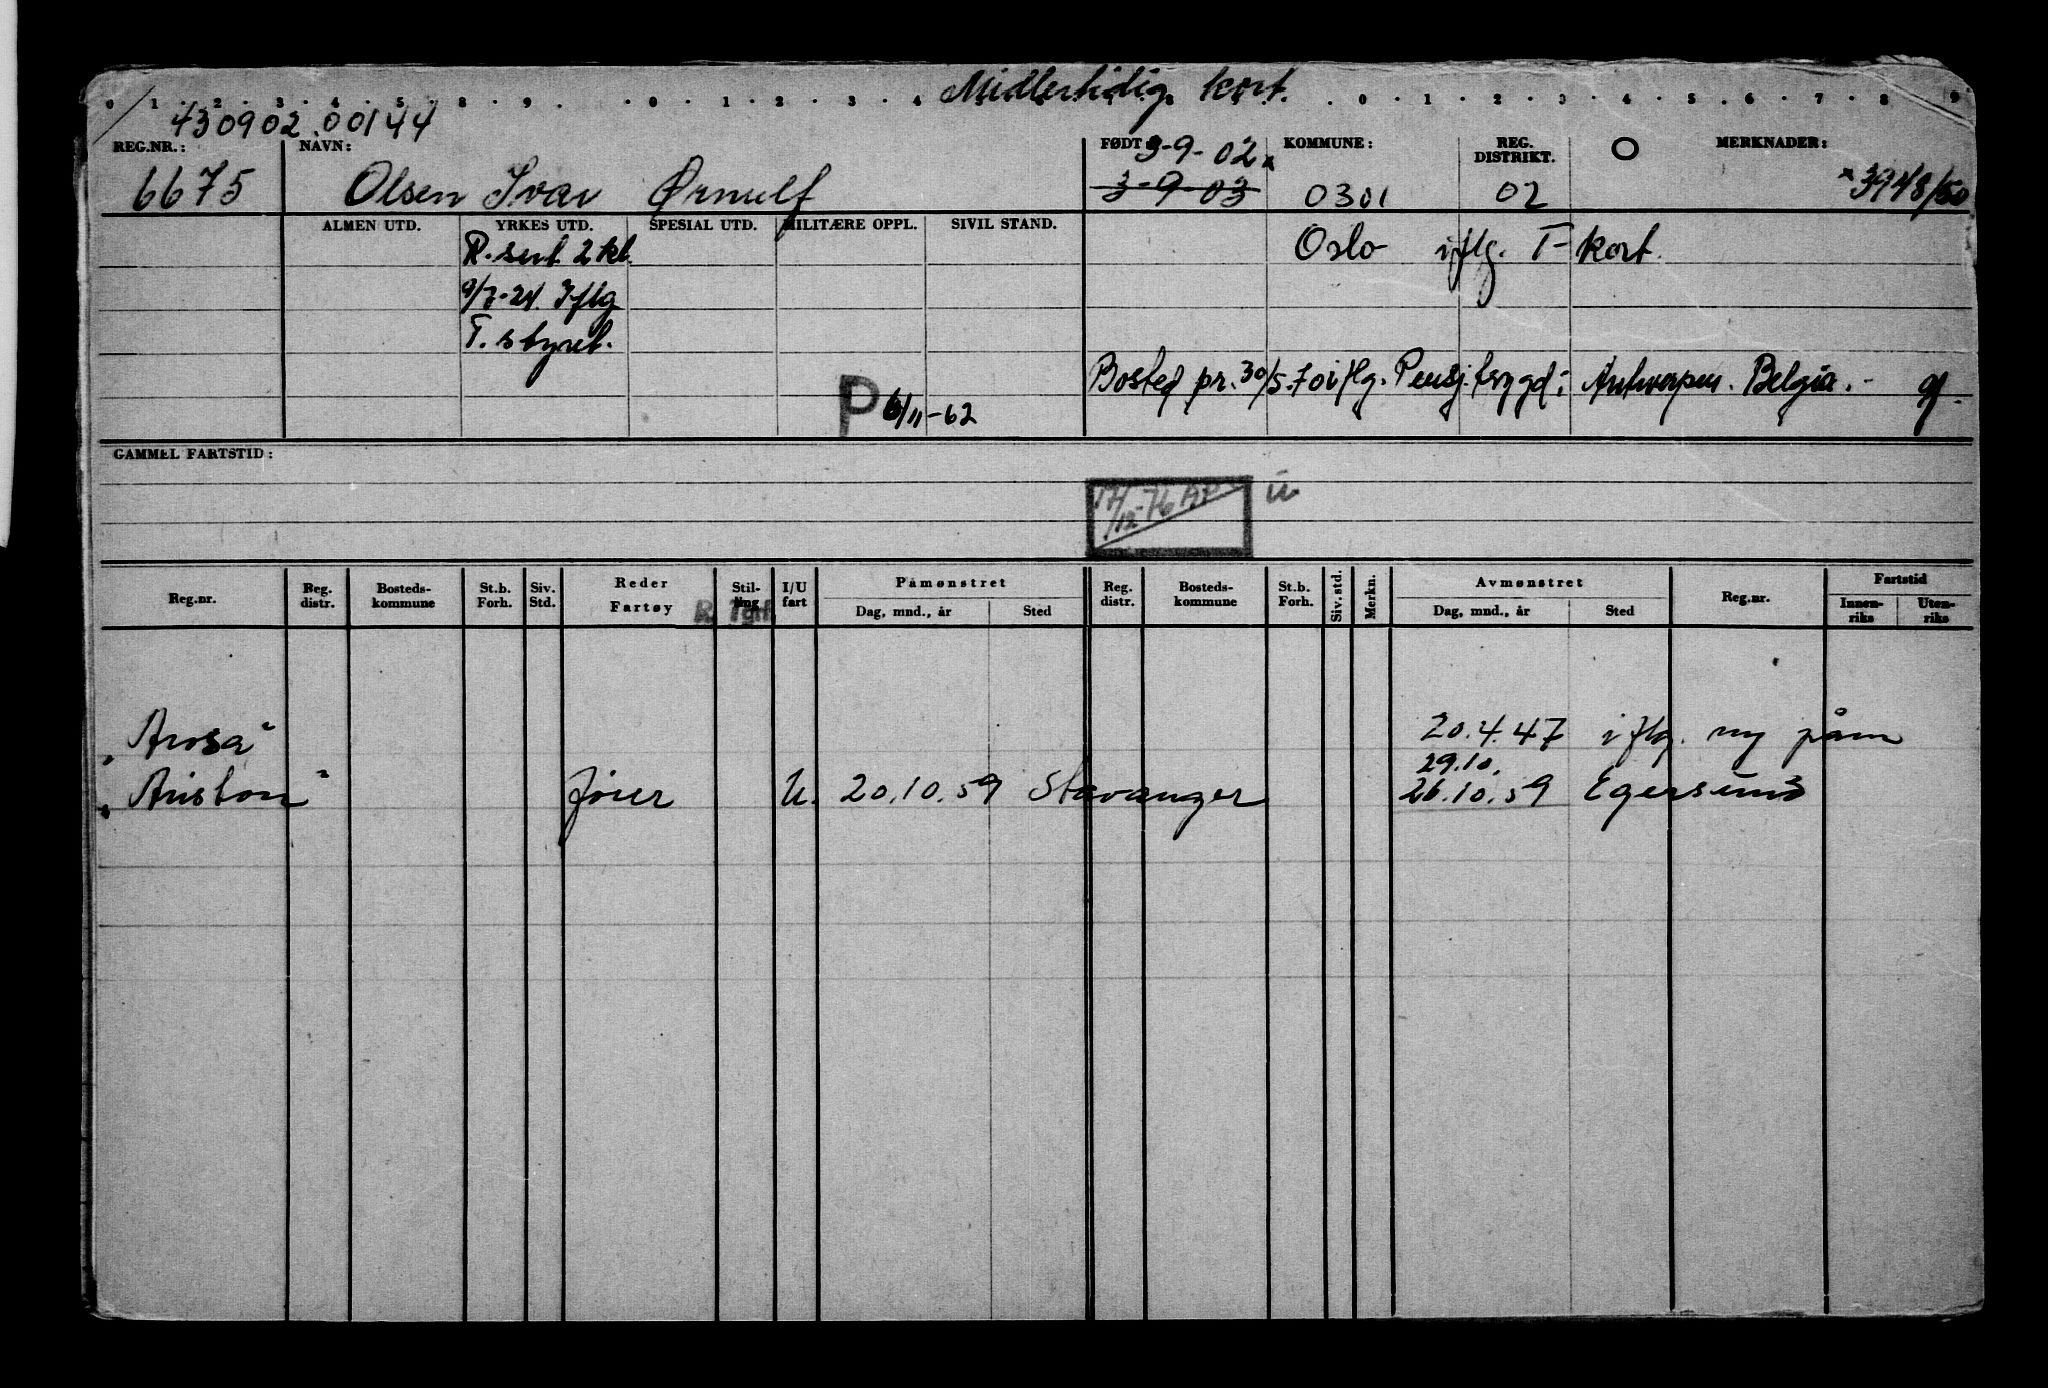 Midlertidig kort.
0 1 2 3 4 5 8 9 0 1 2 3 4 0 1 2 3 4 5 6 7 8 9
430902.00144
REG.NR.: NAVN: FØDT 3-9-02 x KOMMUNE: REG. DISTRIKT. O MERKNADER:
6675 Olsen Ivar Ørnulf 3-9-03 0301 02 x 3948/50
ALMEN UTD. YRKES UTD. SPESIAL UTD. MILITÆRE OPPL. SIVIL STAND.
R. sert. 2 kl. Oslo iflg. T-kort.
9/7-24. Iflg
T. styret.
Bosted pr. 30/5.70 iflg. Pensj.trygd: Antwerpen. Belgia.-
P 6/11-62
GAMMEL FARTSTID:
17/12-76
Reg.nr. Reg. distr. Bosteds-kommune St.b. Forh. Siv. Std. Reder Fartøy Stil-ling I/U fart Påmønstret Dag, mnd., år Sted Reg. distr. Bosteds-kommune St.b. Forh. Siv. std. Merkn. Avmønstret Dag, mnd., år Sted Reg.nr. Fartstid Innen-riks Uten-riks
„Arosa" 20.4.47 iflg. ny påm
29.10.
„Ariston" Jøier U. 20.10.59 Stavanger 26.10.59 Egersund